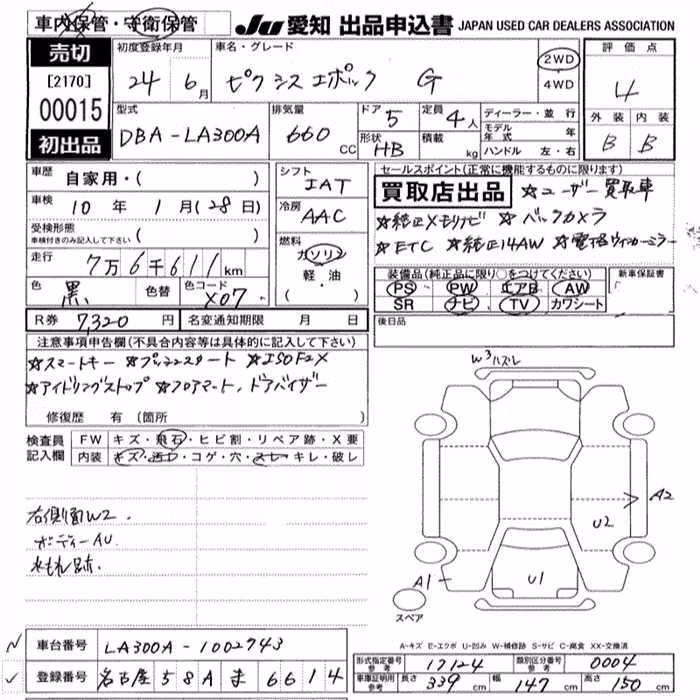 車内保管・守衛保管
JU 愛知 出品申込書 JAPAN USED CAR DEALERS ASSOCIATION
売切
[2170]
00015
初出品
初度登録年月 車名・グレード
24 6月 ピクシスエポック G 2WD
4WD
評価点
4
外装 内装
B B
型式 排気量 ドア 5 定員 4人 ディーラー・並行
DBA-LA300A 660 CC 形状 HB 積載 kg モデル年式 年
ハンドル 左・右
車歴 自家用・( )
車検 10年 1月(28日)
受検形態 車検付きのみ記入して下さい ( )
走行 7万6千611km
色 黒 色替 色コード X07
シフト IAT
冷房 AAC
燃料 ガソリン
軽・油
・( )
R券 7,320円 名変通知期限 月 日
セールスポイント(正常に機能するものに限ります)
買取店出品 ☆ユーザー買取車
☆純正メモリナビ ☆バックカメラ
☆ETC ☆純正14AW ☆電格ウィンカーミラー
装備品(純正品に限り○をつけてください) 新車保証書
PS PW エアB AW
SR ナビ TV カワシート
後日品
注意事項申告欄(不具合内容等は具体的に記入して下さい)
☆スマートキー ☆プッシュスタート ☆ISOFIX
☆アイドリングストップ ☆フロアマート、ドアバイザー
修復歴 有 (箇所
検査員記入欄 FW キズ・飛石・ヒビ割・リペア跡・X要
内装 キズ・汚レ・コゲ・穴・スレ・キレ・破レ
右側面W2.
ボディーAU.
W3ハズレ
A2
U2
U1
A1
スペア
A-キズ E-エクボ U-凹み W-補修跡 S-サビ C-腐食 XX-交換済
車台番号 LA300A-1002743
登録番号 名古屋 58A ま 6614
形式指定番号 参考 17124 類別区分番号 参考 0004
車庫証明用 参考 長さ 339cm 幅 147cm 高さ 150cm